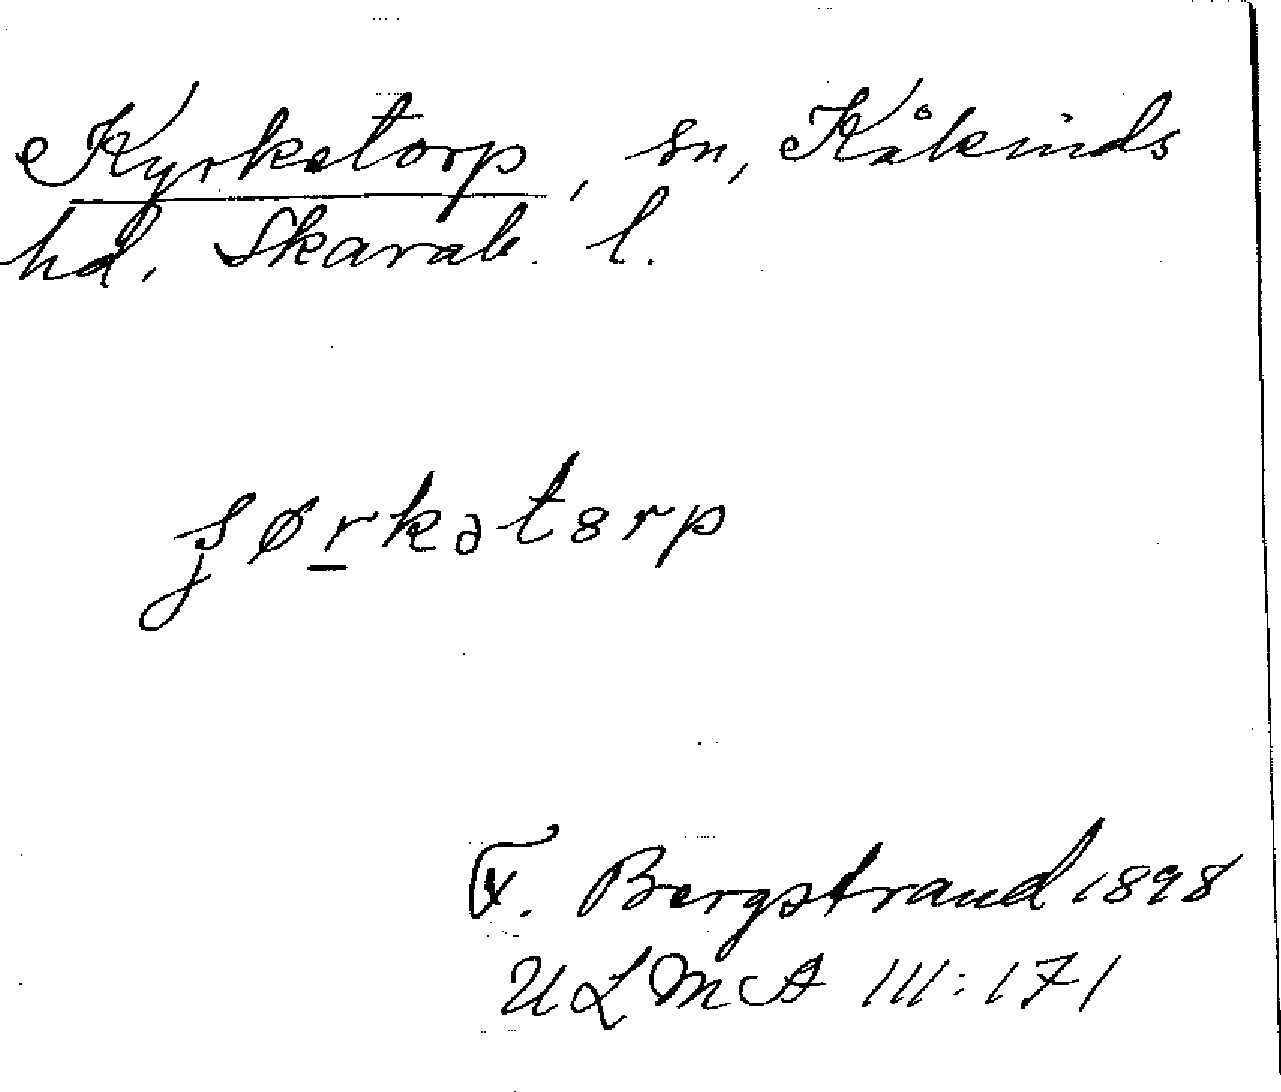 Kyrketorp, sn, Kåkinds
hd. Skarab. l.
ʂørkətɞrp
F. Bergstrand 1898
ULMA 111:171